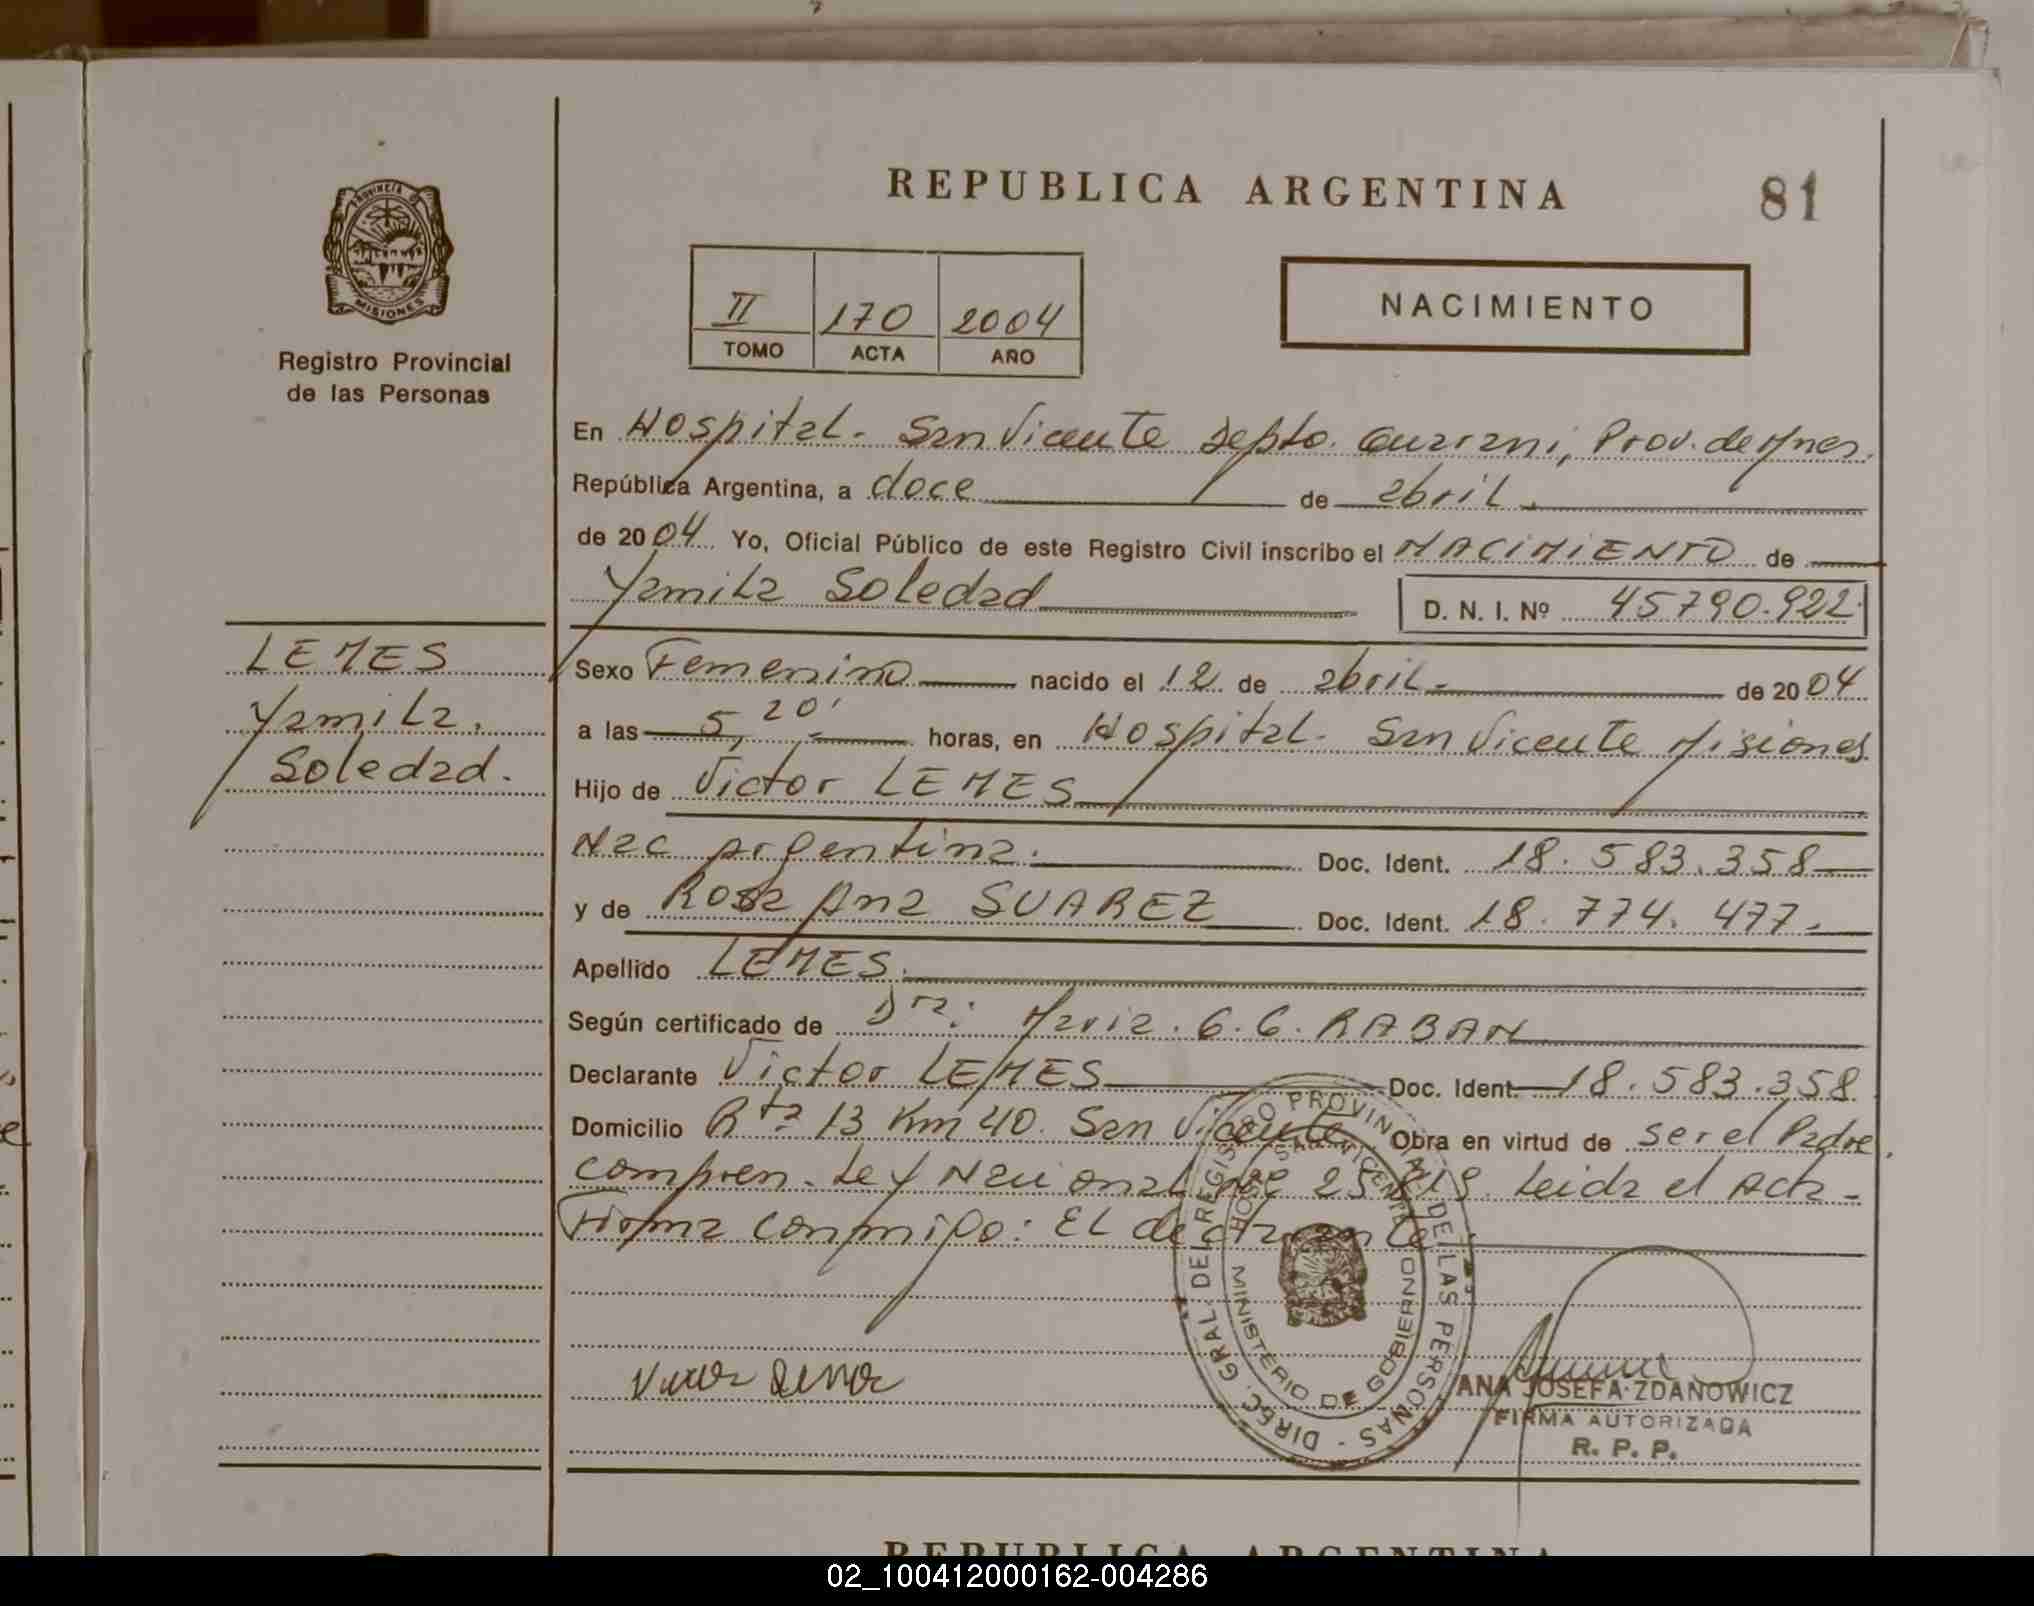 REPUBLICA ARGENTINA
81
PROVINCIA
MISIONES
Registro Provincial
de las Personas
II 170 2004
TOMO ACTA AÑO
NACIMIENTO
En Hospital. San Vicente Depto. Guarani, Prov. de Mnes.
República Argentina, a doce de abril.
de 2004 Yo, Oficial Público de este Registro Civil inscribo el NACIMIENTO de
Yamila Soledad D. N. I. Nº 45790.922
LEMES
Yamila.
Soledad.
Sexo Femenino nacido el 12 de abril. de 2004
a las 5,20' horas, en Hospital. San Vicente Misiones
Hijo de Victor LEMES
Nac argentina. Doc. Ident. 18.583.358
y de Rosa Ana SUAREZ Doc. Ident. 18.774.477.
Apellido LEMES.
Según certificado de Dra: Maria. G. G. RABAN
Declarante Victor LEMES Doc. Ident. 18.583.358
Domicilio Rta 13 Km 40. San Vicente Obra en virtud de ser el Padre,
compren. Ley Nacional 25 819. Leida el Acta
Firma conmigo: El declarante
DIREC. GRAL. DEL REGISTRO PROVINCIAL DE LAS PERSONAS
MINISTERIO DE GOBIERNO
SAN VICENTE
ANA JOSEFA ZDANOWICZ
FIRMA AUTORIZADA
R. P. P.
REPUBLICA ARGENTINA
02_100412000162-004286